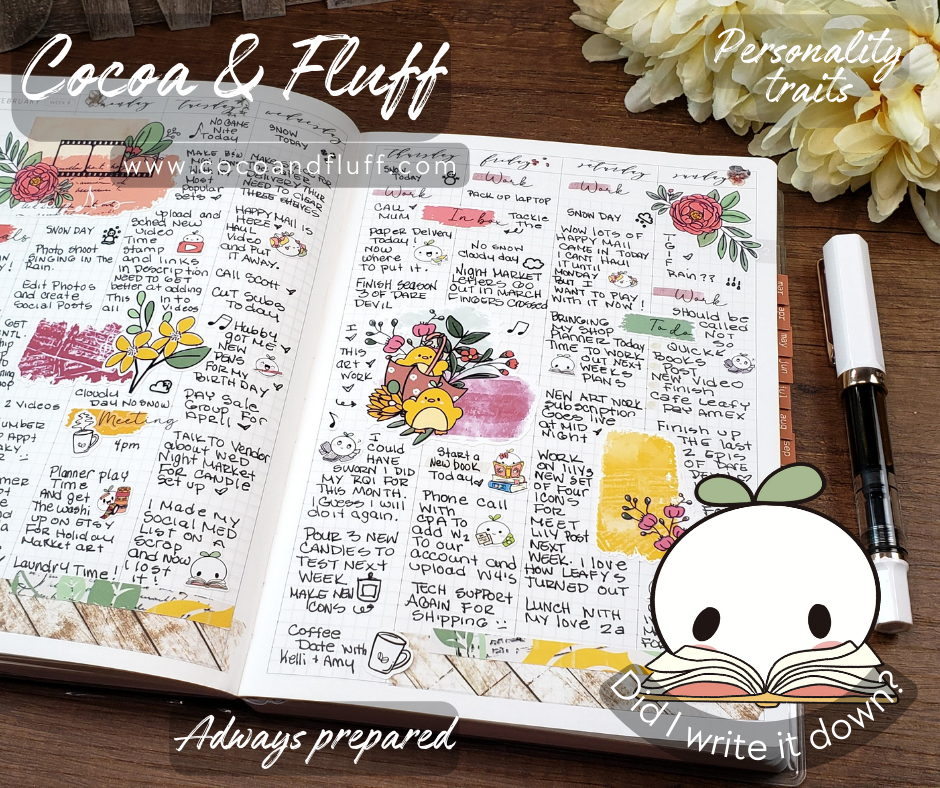 Cocoa & Fluff
www.cocoandfluff.com
Personality
traits
FEBRUARY
monday
tuesday
wednesday
NO GAME
Nite
Today
SNOW
TODAY
MAKE
Most
Popular
Sets
NEED TO CLEAR
THREE SHELVES
SNOW DAY
Photo shoot
SINGING IN THE
Rain.
Edit Photos
and create
Social Posts
2 Videos
Planner play
Time
AND get
The washi
UP ON ETSY
FOR Holiday
Market art
Laundry Time!
upload and
sched New
Video
Time
Stamp
and links
in Description
NEED TO GET
better at adding
This into
all videos
cloudy
Day NO SNOW
Meeting
4pm
I MADE MY
Social MED
LIST ON A
Scrap
and NOW
I lost
it!
HAPPY MAIL IS
HERE
HAUL
Video
and Put
IT AWAY.
CALL SCOTT
CUT SUBS
Today
Hubby
got ME
NEW
PENS
FOR MY
BIRTHDAY
DAY Sale
Group For
April
TALK TO Vendor
about WED
Night MARKET
FOR CANDLE
set up
thursday
friday
saturday
sunday
Today
Work
CALL
MUM
Paper Delivery
Today!
NOW
where
TO put it.
FINISH SEASON
3 OF DARE
DEVIL
I
THIS
art
WORK
I
COULD
HAVE
SWORN I DID
MY RQI FOR
THIS MONTH.
I GUESS I WILL
do it again.
POUR 3 NEW
CANDIES TO
TEST NEXT
WEEK
MAKE NEW
ICONS
Coffee
Date with
Kelli + Amy
Work
PACK UP LAPTOP
Tackle
The
NO SNOW
cloudy day
Night MARKET
LETTERS GO
OUT IN MARCH
FINGERS CROSSED
Start a
New book
Today
PHONE CALL
WITH
CPA TO
add W2
TO our
account and
upload W4'S
TECH SUPPORT
AGAIN FOR
SHIPPING
Work
SNOW DAY
WOW LOTS OF
HAPPY MAIL
CAME IN TODAY
I CANT HAUL
IT UNTIL
MONDAY
BUT I
WANT TO PLAY
WITH IT NOW!
BRINGING
MY SHOP
PLANNER Today
TIME TO WORK
OUT NEXT
WEEKS
PLANS
NEW ART WORK
Subscription
Goes live
at MID
Night
WORK
ON lilys
NEW SET
OF FOUR
ICONS
FOR
MEET
Lily Post
NEXT
WEEK. I love
HOW LEAFYS
TURNED OUT
LUNCH WITH
My love 2a
T.
G.
I.
F.
Rain??
Work
should be
called
NOT
SO
To do
QUICKK
Books
POST
NEW Video
Finish
cafe Leafy
PAY AMEX
Finish up
THE last
2 EPIS
OF DARE
mar
apr
may
jun
jul
aug
sep
Adways prepared
Did I write it down?